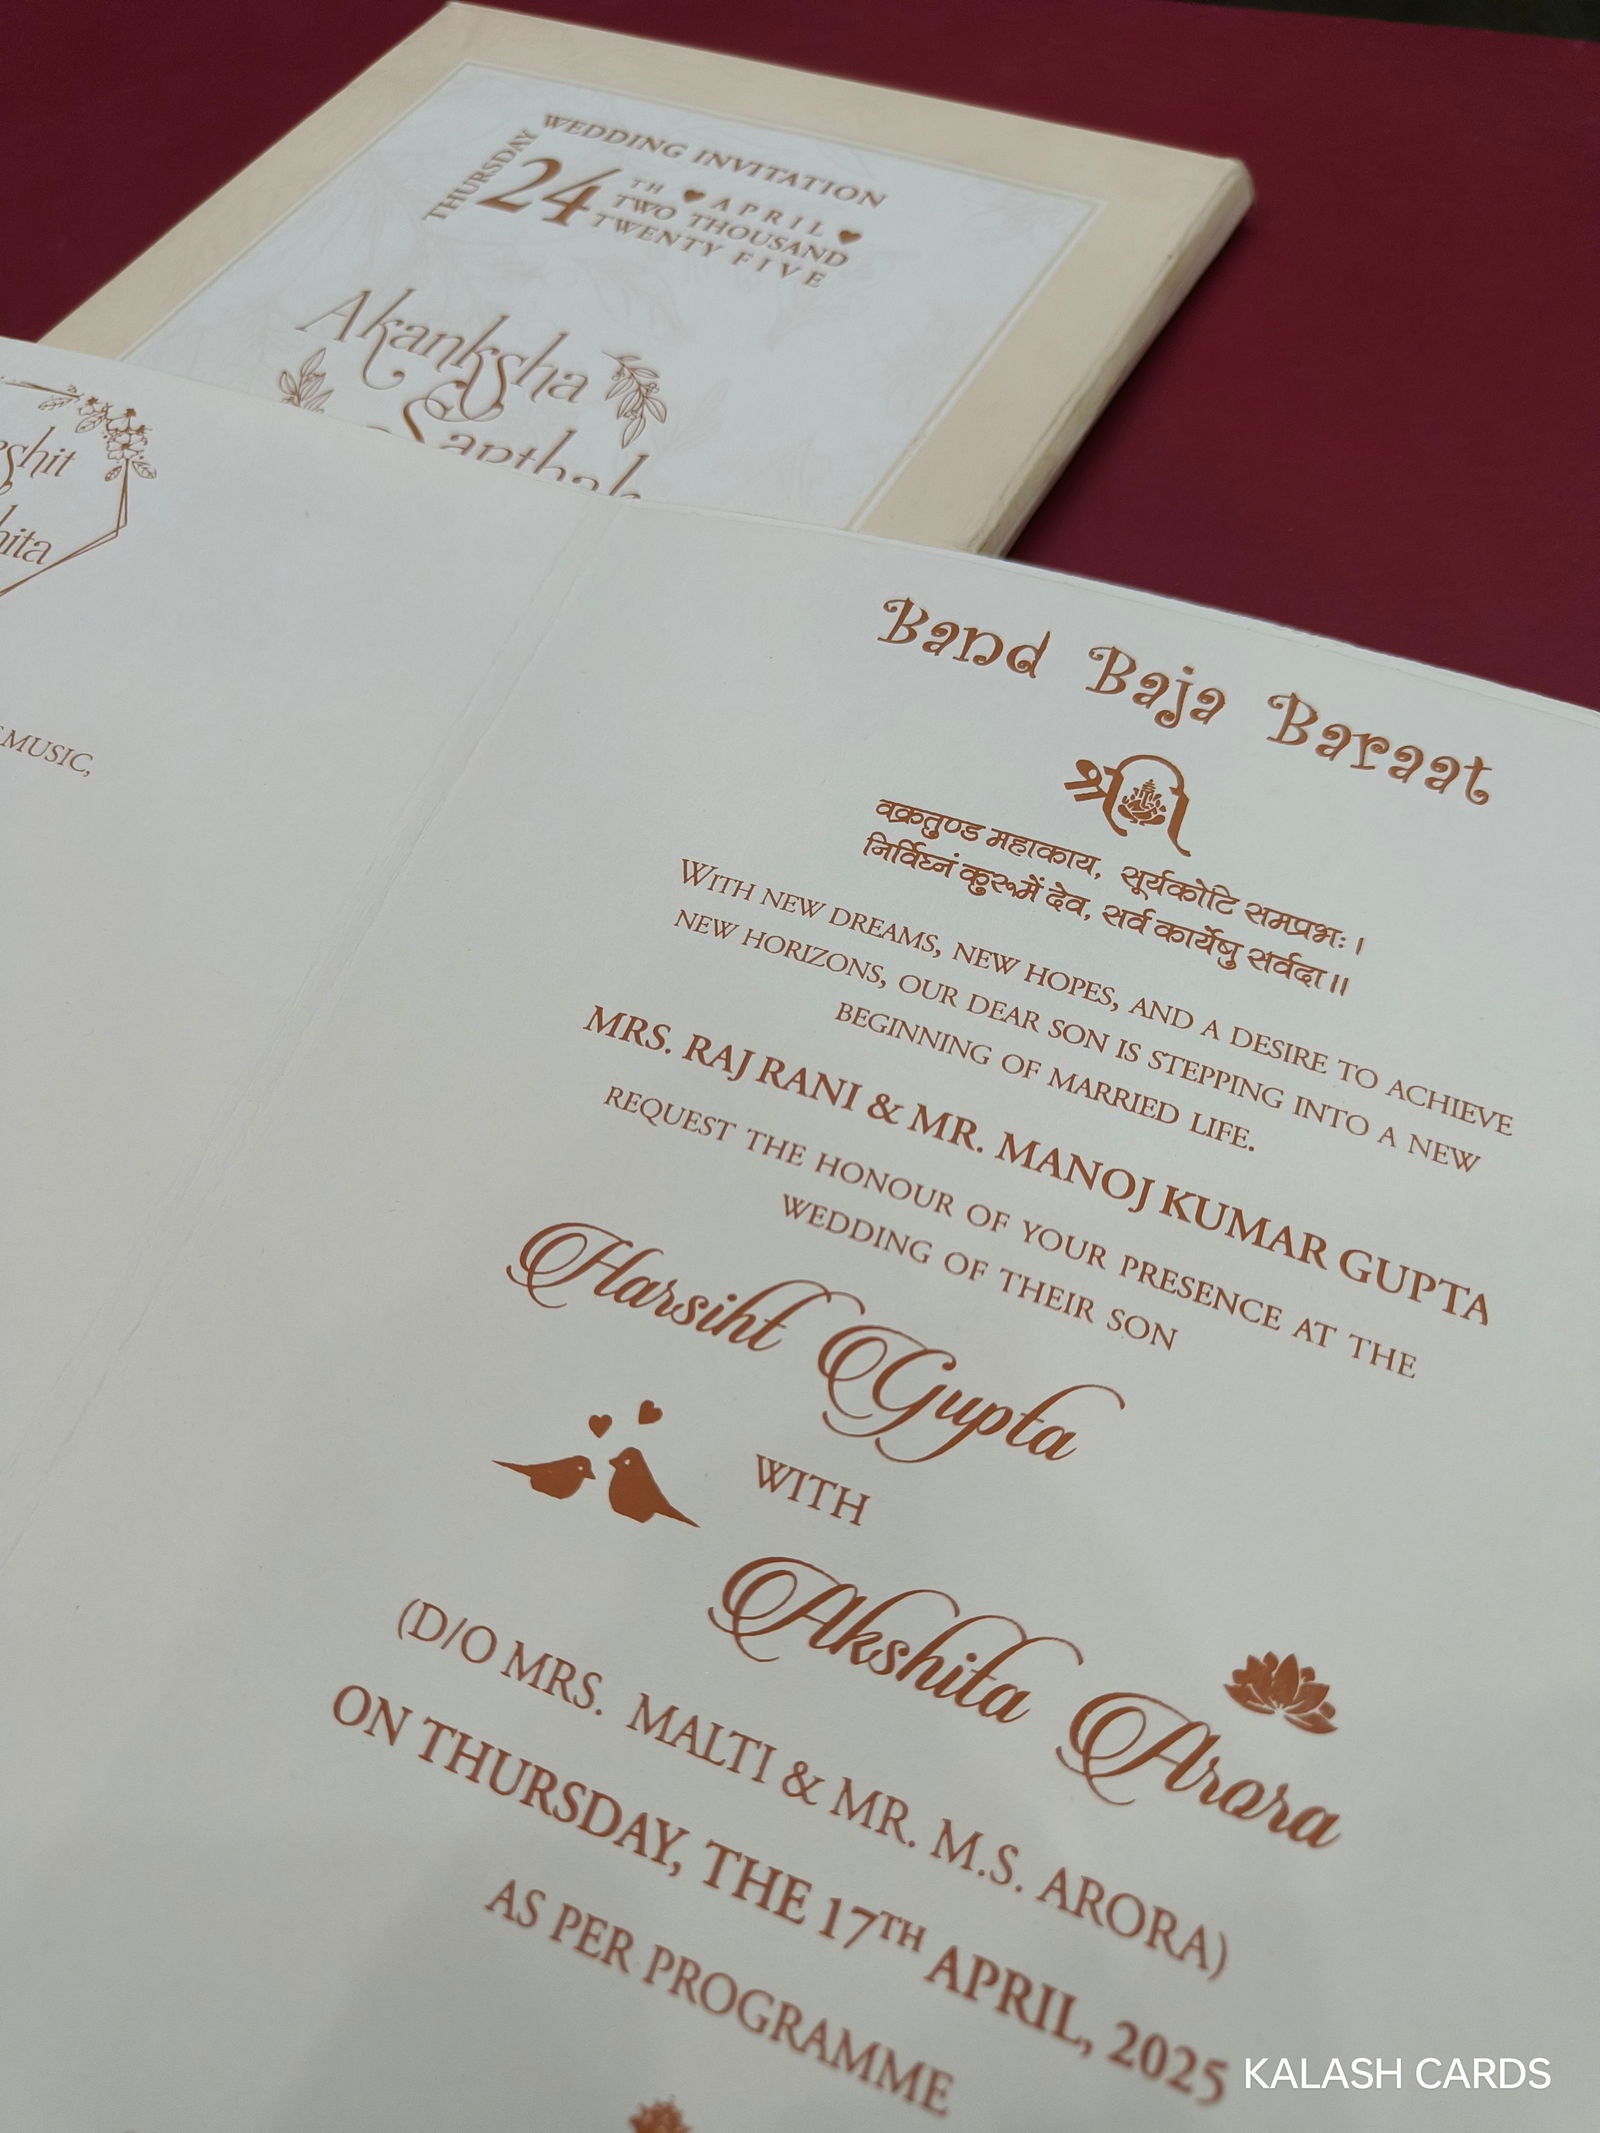 WEDDING INVITATION
THURSDAY
24 TH APRIL
TWO THOUSAND
TWENTY FIVE
Akanksha
MUSIC,
Band Baja Baraat
श्री
वक्रतुण्ड महाकाय, सूर्यकोटि समप्रभः।
निर्विघ्नं कुरूमें देव, सर्व कार्येषु सर्वदा॥
WITH NEW DREAMS, NEW HOPES, AND A DESIRE TO ACHIEVE
NEW HORIZONS, OUR DEAR SON IS STEPPING INTO A NEW
BEGINNING OF MARRIED LIFE.
MRS. RAJ RANI & MR. MANOJ KUMAR GUPTA
REQUEST THE HONOUR OF YOUR PRESENCE AT THE
WEDDING OF THEIR SON
Harsiht Gupta
WITH
Akshita Arora
(D/O MRS. MALTI & MR. M.S. ARORA)
ON THURSDAY, THE 17TH APRIL, 2025
AS PER PROGRAMME
KALASH CARDS